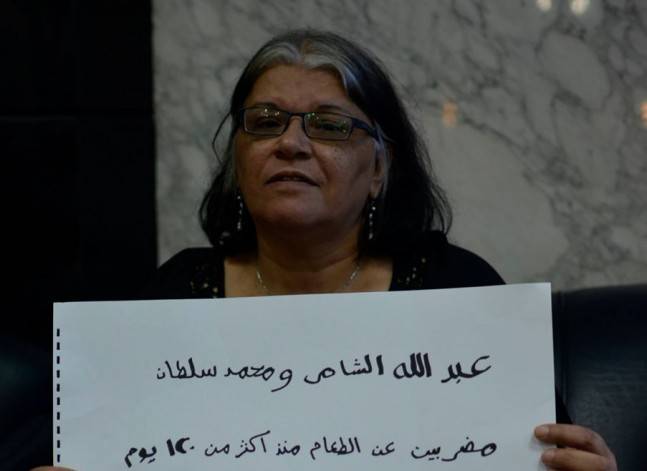 عبد الله الشامى ومحمد سلطان
مضربين عن الطعام منذ أكثر من ١٢٠ يوم